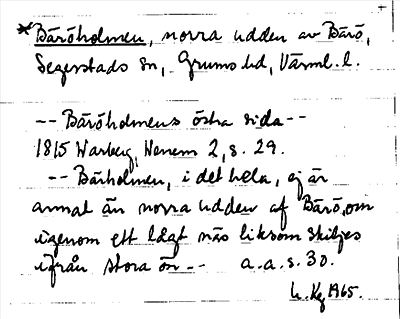 *Bäröholmen, norra udden av Bärö,
Segerstads sn, Grums hd, Värml. l.
-- Bäröholmens östra sida --
1815 Warberg, Wenern 2, s. 29.
-- Bärholmen, i det hela, ej är
annat än norra udden af Bärö, som
igenom ett lågt näs liksom skiljes
ifrån stora ön -- a.a.s. 30.
1965.